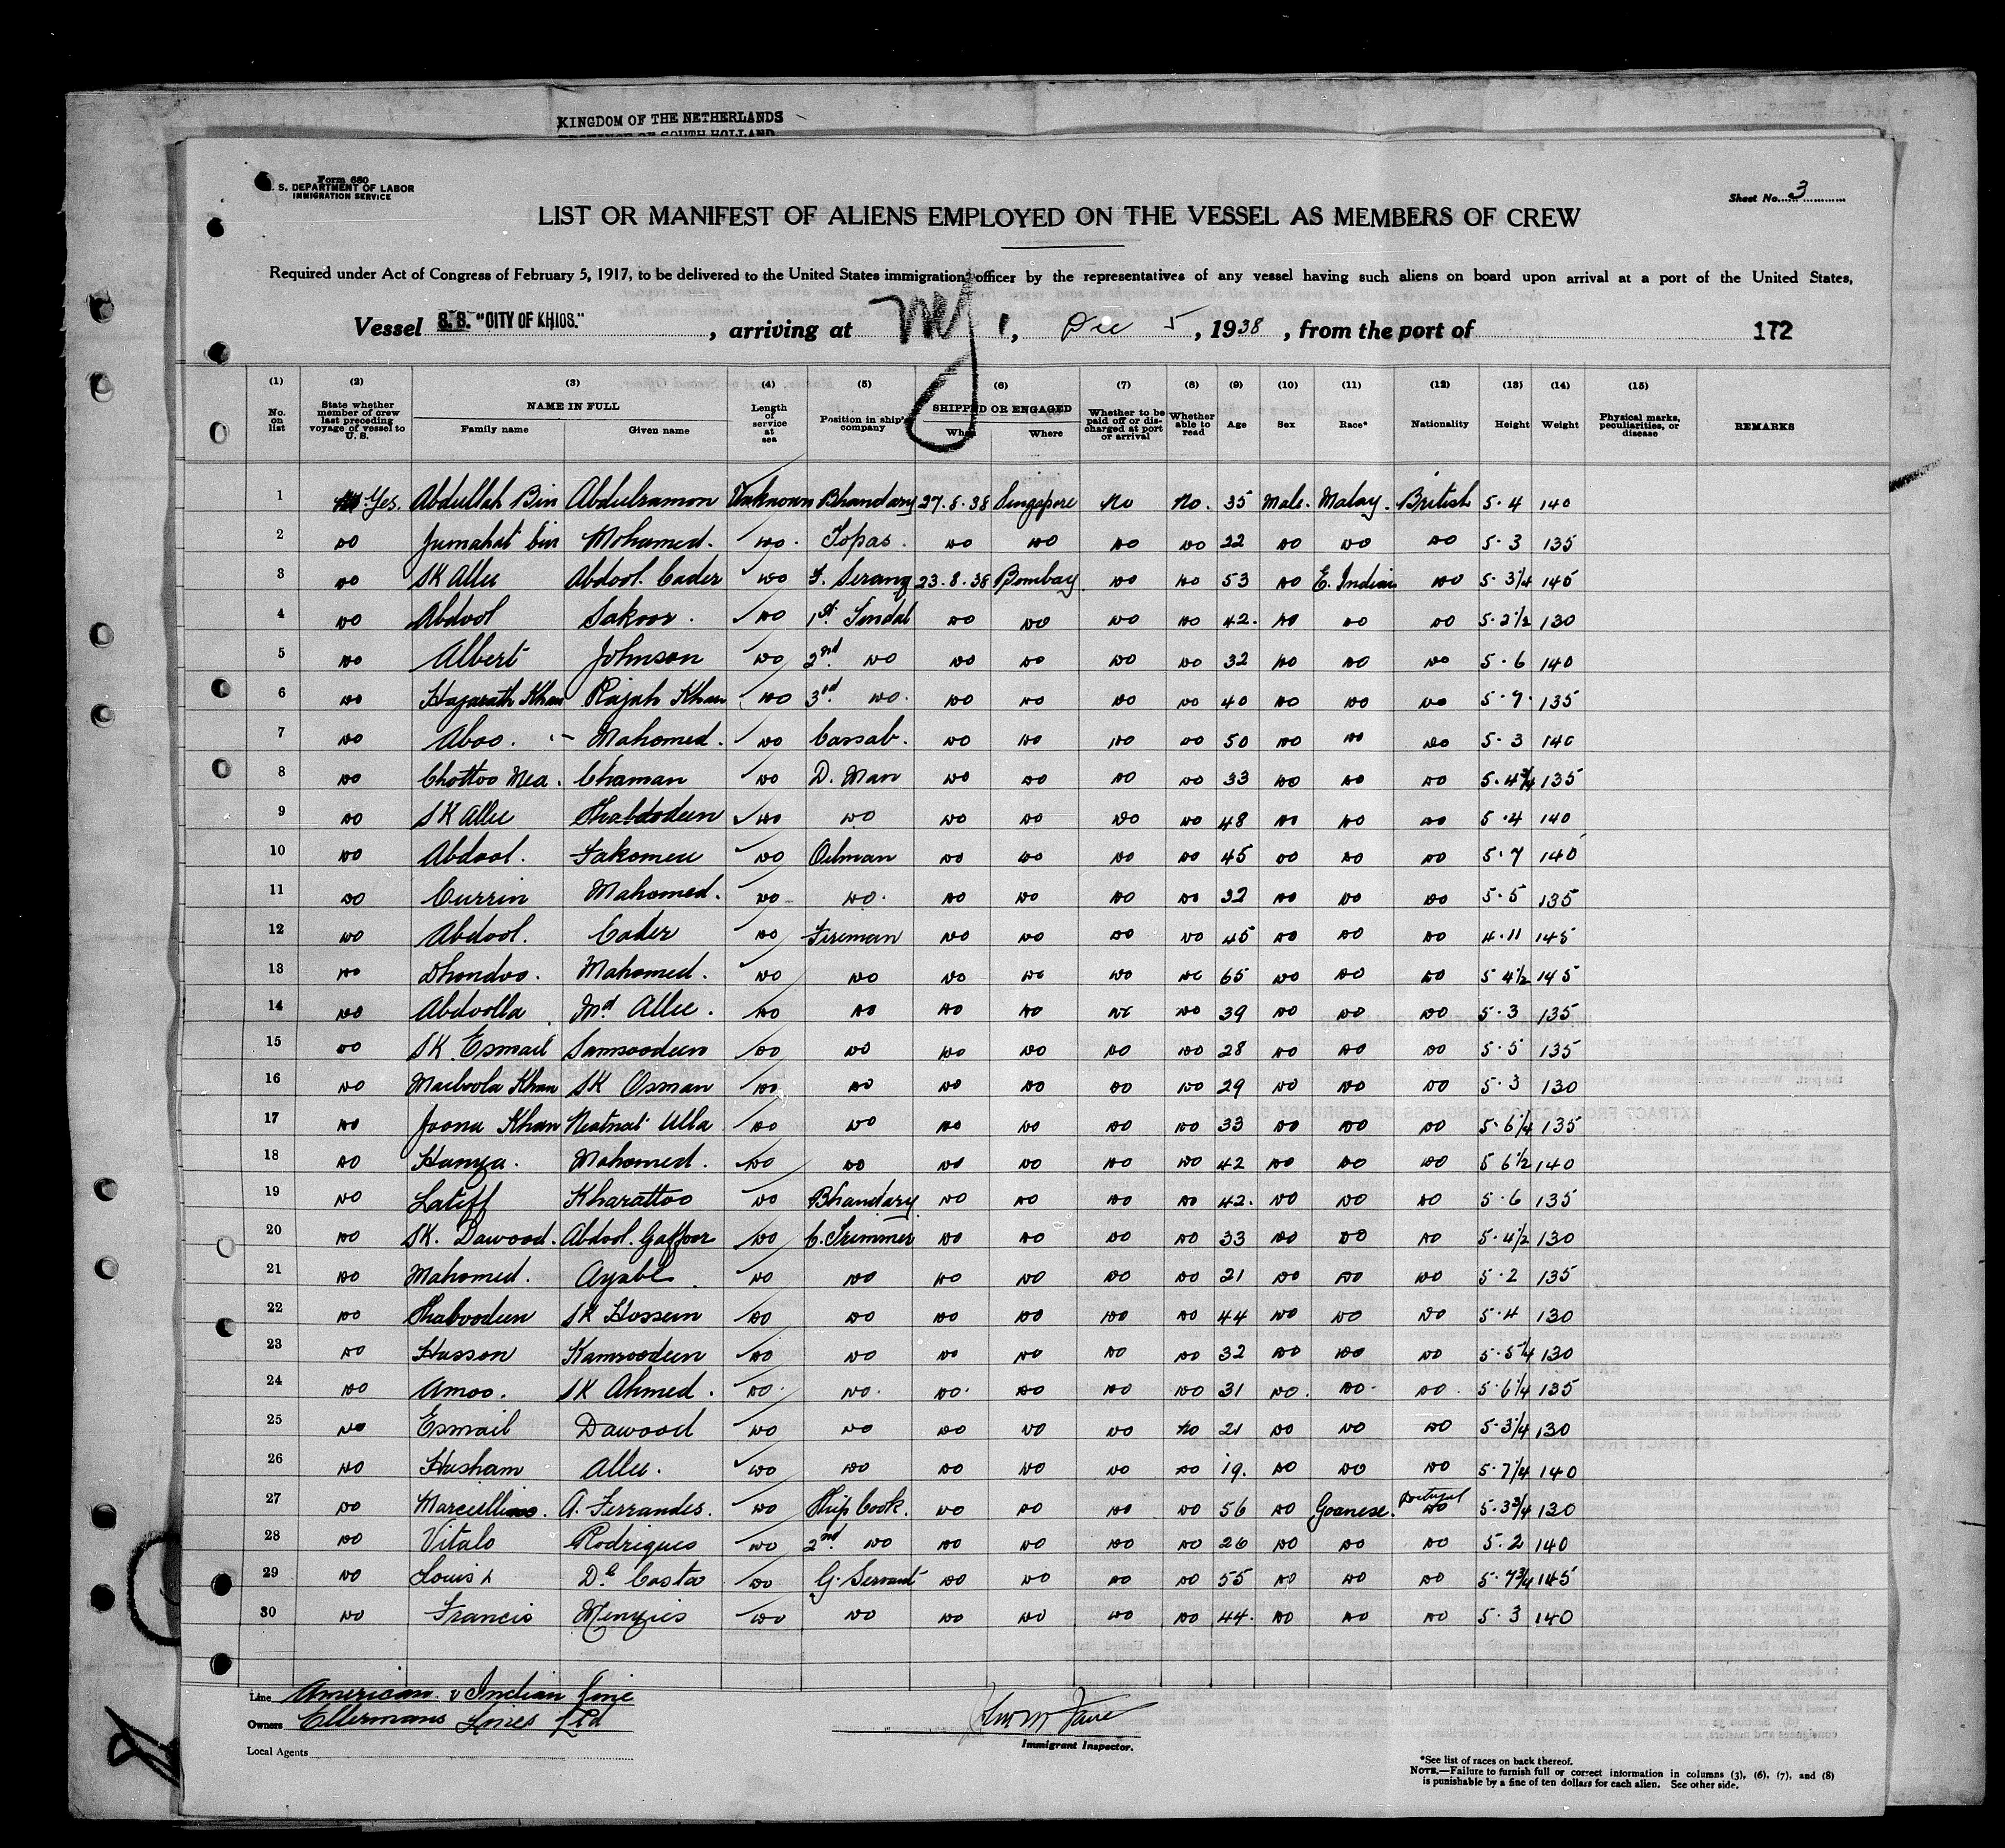 KINGDOM OF THE NETHERLANDS
Form 680
U. S. DEPARTMENT OF LABOR
IMMIGRATION SERVICE
Sheet No. 3
LIST OR MANIFEST OF ALIENS EMPLOYED ON THE VESSEL AS MEMBERS OF CREW
Required under Act of Congress of February 5, 1917, to be delivered to the United States immigration officer by the representatives of any vessel having such aliens on board upon arrival at a port of the United States,
Vessel S.S. "CITY OF KHIOS." , arriving at NY , Dec 5 , 1938 , from the port of 172
(1) (2) (3) (4) (5) (6) (7) (8) (9) (10) (11) (12) (13) (14) (15)
No. on list State whether member of crew last preceding voyage of vessel to U. S. NAME IN FULL Family name Given name Length of service at sea Position in ship's company SHIPPED OR ENGAGED When Where Whether to be paid off or discharged at port or arrival Whether able to read Age Sex Race* Nationality Height Weight Physical marks, peculiarities, or disease REMARKS
1 Yes. Abdullah Bin Abdulramon Unknown Bhandary 27.8.38 Singapore No No. 35 Male. Malay. British 5.4 140
2 DO Jumahat bin Mohamed. DO Topas. DO DO DO DO 22 DO DO DO 5.3 135
3 DO SK Allee Abdool. Cader DO F. Serang 23.8.38 Bombay DO DO 53 DO E. Indian DO 5.3¼ 145
4 DO Abdool Sakoor. DO 1st. Tindal DO DO DO DO 42. DO DO DO 5.2½ 130
5 DO Albert Johnson DO 2nd. DO DO DO DO DO 32 DO DO DO 5.6 140
6 DO Hajarath Khan Rajah Khan DO 3rd. DO. DO DO DO DO 40 DO DO DO 5.7. 135
7 DO Aboo. Mahomed. DO Cassab. DO DO DO DO 50 DO DO DO 5.3 140
8 DO Chottoo Mea. Chaman DO D. Man DO DO DO DO 33 DO DO DO 5.4¾ 135
9 DO SK Allee Shabdodeen DO DO DO DO DO DO 48 DO DO DO 5.4 140
10 DO Abdool. Fakomeu DO Oilman DO DO DO DO 45 DO DO DO 5.7 140
11 DO Currin Mahomed. DO DO. DO DO DO DO 32 DO DO DO 5.5 135
12 DO Abdool. Cader DO Fireman DO DO DO DO 45 DO DO DO 4.11 145
13 DO Dhondoo. Mahomed. DO DO DO DO DO DO 65 DO DO DO 5 4½ 145
14 DO Abdoolla Md. Allee. DO DO DO DO DO DO 39 DO DO DO 5.3 135
15 DO SK. Esmail Samsoodeen DO DO DO DO DO DO 28 DO DO DO 5.5 135
16 DO Maiboola Khan SK Osman DO DO DO DO DO DO 29 DO DO DO 5.3 130
17 DO Joona Khan Neatnat Ulla DO DO DO DO DO DO 33 DO DO DO 5.6¼ 135
18 DO Hamza. Mahomed. DO DO DO DO DO DO 42 DO DO DO 5 6½ 140
19 DO Latiff Kharattoo DO Bhandary DO DO DO DO 42. DO DO DO 5.6 135
20 DO SK. Dawood. Abdool. Gaffoor DO C. Trimmer DO DO DO DO 33 DO DO DO 5.4½ 130
21 DO Mahomed. Ayable. DO DO DO DO DO DO 21 DO DO DO 5.2 135
22 DO Shaboodeen SK Hossein DO DO DO DO DO DO 44 DO DO DO 5.4 130
23 DO Hasson Kamroodeen DO DO DO DO DO DO 32 DO DO DO 5.5¼ 130
24 DO Amoo. SK Ahmed. DO DO. DO. DO DO DO 31 DO. DO. DO. 5.6¼ 135
25 DO Esmail Dawood DO DO DO DO DO No 21 DO DO DO 5.3¼ 130
26 DO Husham Allee. DO DO DO DO DO DO 19. DO DO DO 5.7¼ 140
27 DO Marcellino. A. Ferrandes. DO Ship Cook. DO DO DO DO 56 DO Goanese. Portugal DO 5.3¾ 130
28 DO Vitalo Rodrigues DO 2nd. DO DO DO DO DO 26 DO DO DO 5.2 140
29 DO Louis De Costa DO G. Servant DO DO DO DO 55 DO DO DO 5.7¾ 145
30 DO Francis Menzies DO DO DO DO DO DO 44. DO DO DO 5.3 140
Line American & Indian Line
Owners Ellermans Lines Ltd
Local Agents
Immigrant Inspector.
*See list of races on back thereof.
NOTE.—Failure to furnish full or correct information in columns (3), (6), (7), and (8)
is punishable by a fine of ten dollars for each alien. See other side.